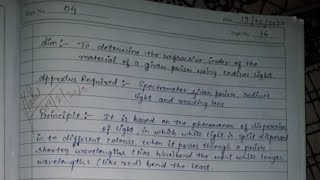 04
Date 19/12/2024
Page No. 16
Aim:- To determine the refractive index of the
material of a given prism using sodium light.
Appratus Required:- Spectrometer, given prism, sodium
light and reading lens
Principle:- It is based on the phenomenon of dispersion
of light, in which white light is split dispersed
in to different colours, when it passes through a prism,
shorter wavelengths (like blue) bend the most while longer
wavelengths (like red) bend the least.